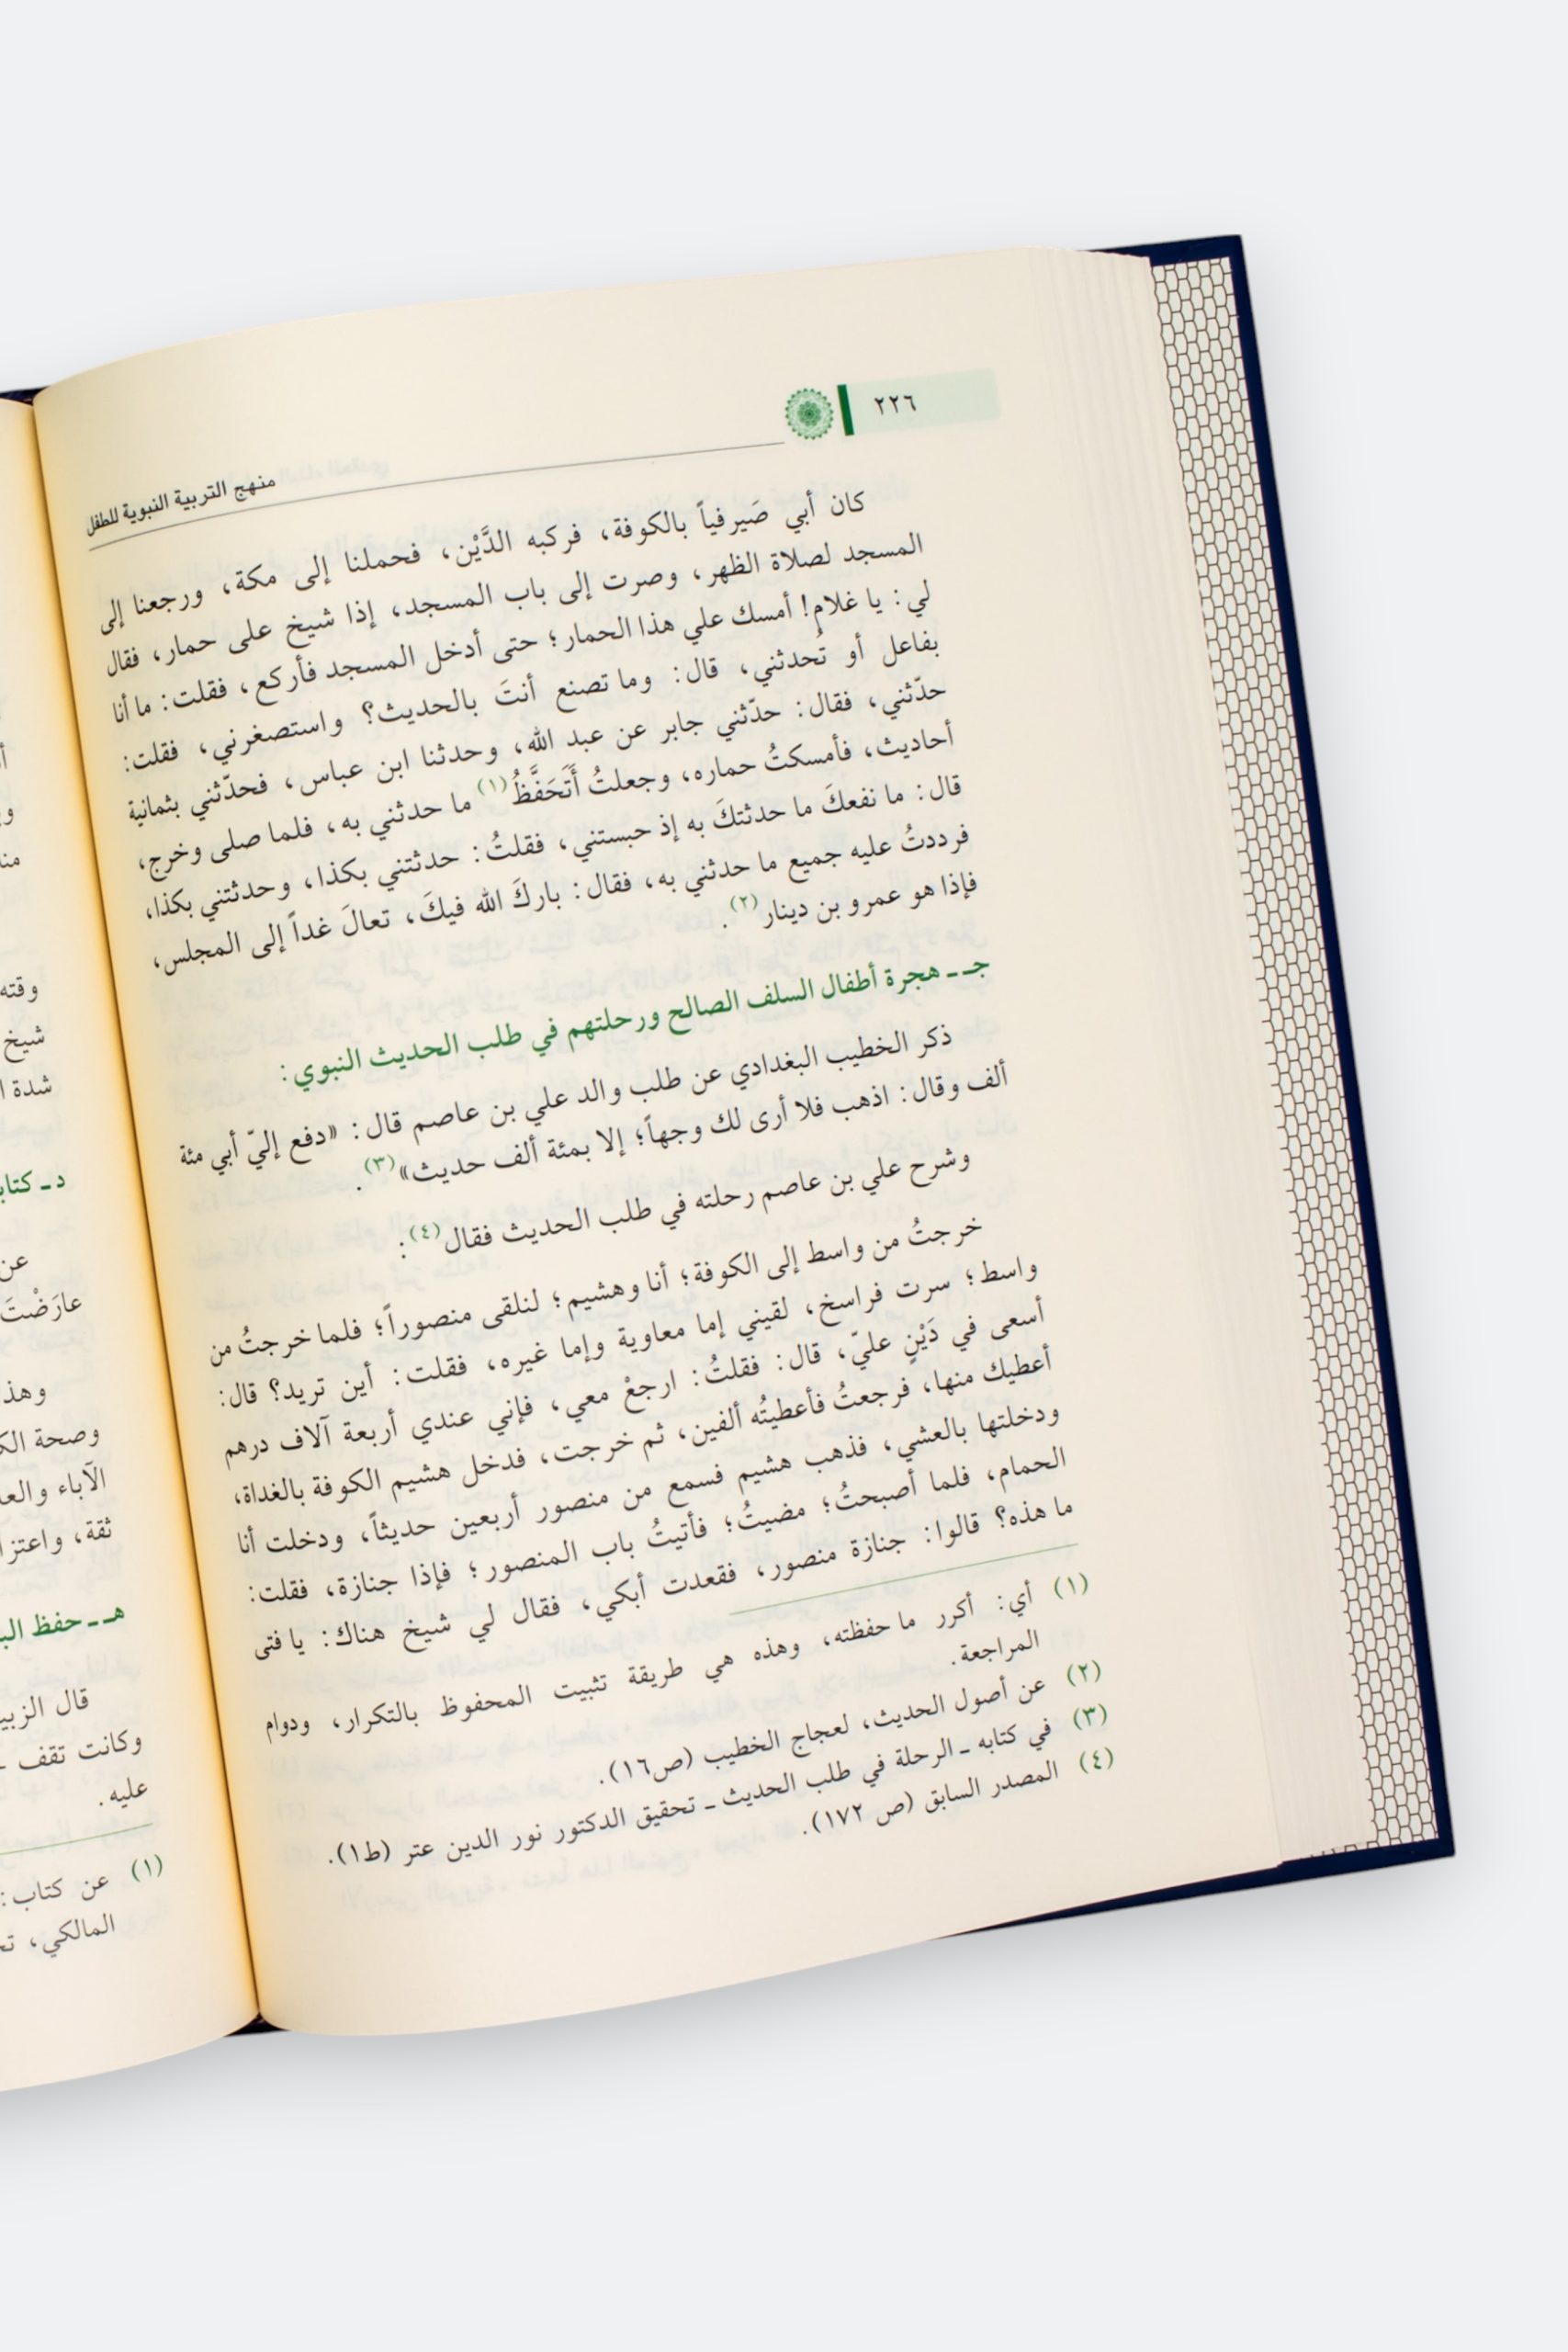 ٢٢٦
منهج التربية النبوية للطفل
كان أبي صَيرفياً بالكوفة، فركبه الدَّيْن، فحملنا إلى مكة، ورجعنا إلى
المسجد لصلاة الظهر، وصرت إلى باب المسجد، إذا شيخ على حمار، فقال
لي: يا غلام! أمسك علي هذا الحمار؛ حتى أدخل المسجد فأركع، فقلت: ما أنا
بفاعل أو تُحدثني، قال: وما تصنع أنتَ بالحديث؟ واستصغرني، فقلت:
حدّثني، فقال: حدّثني جابر عن عبد الله، وحدثنا ابن عباس، فحدّثني بثمانية
أحاديث، فأمسكتُ حماره، وجعلتُ أَتَحَفَّظُ(١) ما حدثني به، فلما صلى وخرج،
قال: ما نفعكَ ما حدثتكَ به إذ حبستني، فقلتُ: حدثتني بكذا، وحدثتني بكذا،
فرددتُ عليه جميع ما حدثني به، فقال: باركَ الله فيكَ، تعالَ غداً إلى المجلس،
فإذا هو عمرو بن دينار(٢).
جـ ـ هجرة أطفال السلف الصالح ورحلتهم في طلب الحديث النبوي:
ذكر الخطيب البغدادي عن طلب والد علي بن عاصم قال: «دفع إليّ أبي مئة
ألف وقال: اذهب فلا أرى لك وجهاً؛ إلا بمئة ألف حديث»(٣).
وشرح علي بن عاصم رحلته في طلب الحديث فقال(٤):
خرجتُ من واسط إلى الكوفة؛ أنا وهشيم؛ لنلقى منصوراً؛ فلما خرجتُ من
واسط؛ سرت فراسخ، لقيني إما معاوية وإما غيره، فقلت: أين تريد؟ قال:
أسعى في دَيْنٍ عليّ، قال: فقلتُ: ارجعْ معي، فإني عندي أربعة آلاف درهم
أعطيك منها، فرجعتُ فأعطيتُه ألفين، ثم خرجت، فدخل هشيم الكوفة بالغداة،
ودخلتها بالعشي، فذهب هشيم فسمع من منصور أربعين حديثاً، ودخلت أنا
الحمام، فلما أصبحتُ؛ مضيتُ؛ فأتيتُ باب المنصور؛ فإذا جنازة، فقلت:
ما هذه؟ قالوا: جنازة منصور، فقعدت أبكي، فقال لي شيخ هناك: يا فتى
(١) أي: أكرر ما حفظته، وهذه هي طريقة تثبيت المحفوظ بالتكرار، ودوام
المراجعة.
(٢) عن أصول الحديث، لعجاج الخطيب (ص١٦).
(٣) في كتابه ـ الرحلة في طلب الحديث ـ تحقيق الدكتور نور الدين عتر (ط١).
(٤) المصدر السابق (ص ١٧٢).
وقته
شيخ
شدة
عن
عارَضْتَ
وهذ
وصحة
الآباء
ثقة،
هـ ـ حفظ
وكانت تقف
عليه.
(١) عن كتاب:
المالكي،